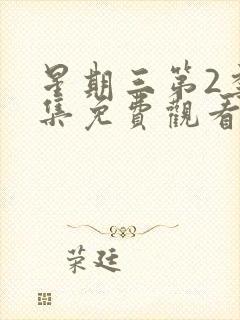 星期三第2
集免費觀看
荣廷